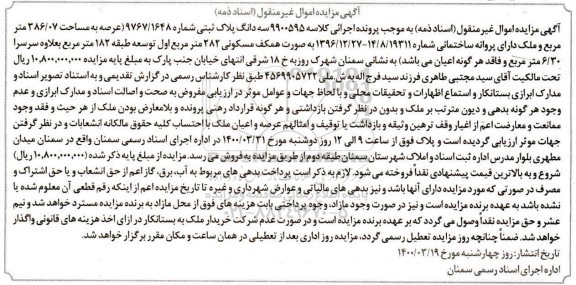 آگهی مزایده اموال غیرمنقول (اسناد ذمه)
آگهی مزایده اموال غیرمنقول (اسناد ذمه) به موجب پرونده اجرائی کلاسه ۹۹۰۰۵۹۵ سه دانگ پلاک ثبتی شماره ۹۷۶۷/۱۶۴۸ (عرصه به مساحت ۳۸۶/۰۷ متر
مربع و ملک دارای پروانه ساختمانی شماره ۱۴/۸/۱۹۳۱۱-۱۳۹۶/۱۲/۲۷ به صورت همکف مسکونی ۲۸۲ متر مربع اول توسعه طبقه ۱۸۲ متر مربع بعلاوه سرسرا
۶/۳۰ متر مربع و فاقد هرگونه اعیان می باشد) به نشانی سمنان شهرک روزیه خ ۱۸ شرقی انتهای خیابان جنب پارک به مبلغ پایه مزایده ۱۰,۸۰۰,۰۰۰,۰۰۰ ریال
تحت مالکیت آقای سید مجتبی طاهری فرزند سید فرج اله به ش ملی ۴۵۶۹۹۰۵۷۲۲ طبق نظر کارشناس رسمی در گزارش تقدیمی و به استناد تصویر اسناد و
مدارک ابرازی بستانکار و استماع اظهارات و تحقیقات محلی و با لحاظ جهات و عوامل موثر در ارزیابی مفروض به صحت و اصالت اسناد و مدارک ابرازی و عدم
وجود هر گونه بدهی و دیون مترتب بر ملک و بدون در نظر گرفتن بازداشتی و هر گونه قرارداد رهنی پرونده و بلامعارض بودن ملک از هر حیث و فقد وجود
ممانعت و معارضت اعم از اغیار وقف ترهین وثیقه و بازداشت یا توقیف و امثالهم عرصه و اعیان ملک با احتساب کلیه حقوق مالکانه انشعابات و در نظر گرفتن
جهات موثر ارزیابی گردیده است و پلاک فوق از ساعت ۹ الی ۱۲ روز دوشنبه مورخ ۱۴۰۰/۰۳/۳۱ در اداره اجرای اسناد رسمی سمنان واقع در سمنان میدان
مطهری بلوار مدرس اداره ثبت اسناد و املاک شهرستان سمنان طبقه دوم از طریق مزایده به فروش می رسد. مزایده از مبلغ پایه ذکر شده (۱۰,۸۰۰,۰۰۰,۰۰۰ ریال)
شروع و به بالاترین قیمت پیشنهادی نقداً فروخته می شود. لازم به ذکر است پرداخت بدهی های مربوط به آب، برق، گاز اعم از حق انشعاب و یا حق اشتراک و
مصرف در صورتی که مورد مزایده دارای آنها باشد و نیز بدهی های مالیاتی و عوارض شهرداری و غیره تا تاریخ مزایده اعم از اینکه رقم قطعی آن معلوم شده یا
نشده باشد به عهده برنده مزایده است و نیز در صورت وجود مازاد، وجوه پرداختی بابت هزینه های فوق از محل مازاد به برنده مزایده مسترد خواهد شد و نیم
عشر و حق مزایده نقداً وصول می گردد که بر عهده برنده مزایده است و در صورت عدم شرکت خریدار ملک به بستانکار در ازای اخذ هزینه های قانونی واگذار
خواهد شد. ضمناً چنانچه روز مزایده تعطیل رسمی گردد، مزایده روز اداری بعد از تعطیلی در همان ساعت و مکان مقرر برگزار خواهد شد.
تاریخ انتشار: روز چهارشنبه مورخ ۱۴۰۰/۰۳/۱۹
اداره اجرای اسناد رسمی سمنان